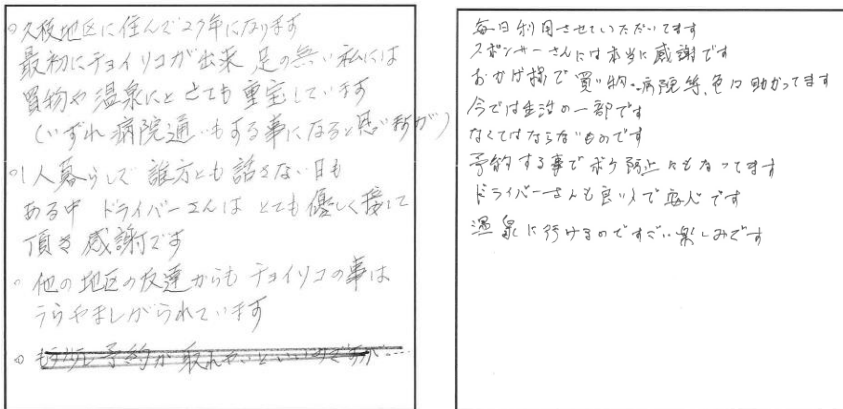 ○久枝地区に住んで27年になります
最初にチョイソコが出来 足の無い私には
買物や温泉にと とても重宝しています
(いずれ病院通いもする事になると思いますが)
○1人暮らしで 誰方とも話さない日も
ある中 ドライバーさんは とても優しく接して
頂き 感謝です
○他の地区の友達からも チョイソコの事は
うらやましがられています
○もう少し予約が取れやすいといいのですが…
毎日利用させていただいてます
スポンサーさんには本当に感謝です
おかげ様で買い物、病院等、色々助かってます
今では生活の一部です
なくてはならないものです
予約する事でボケ防止にもなってます
ドライバーさんも良い人で安心です
温泉に行けるのですごい楽しみです